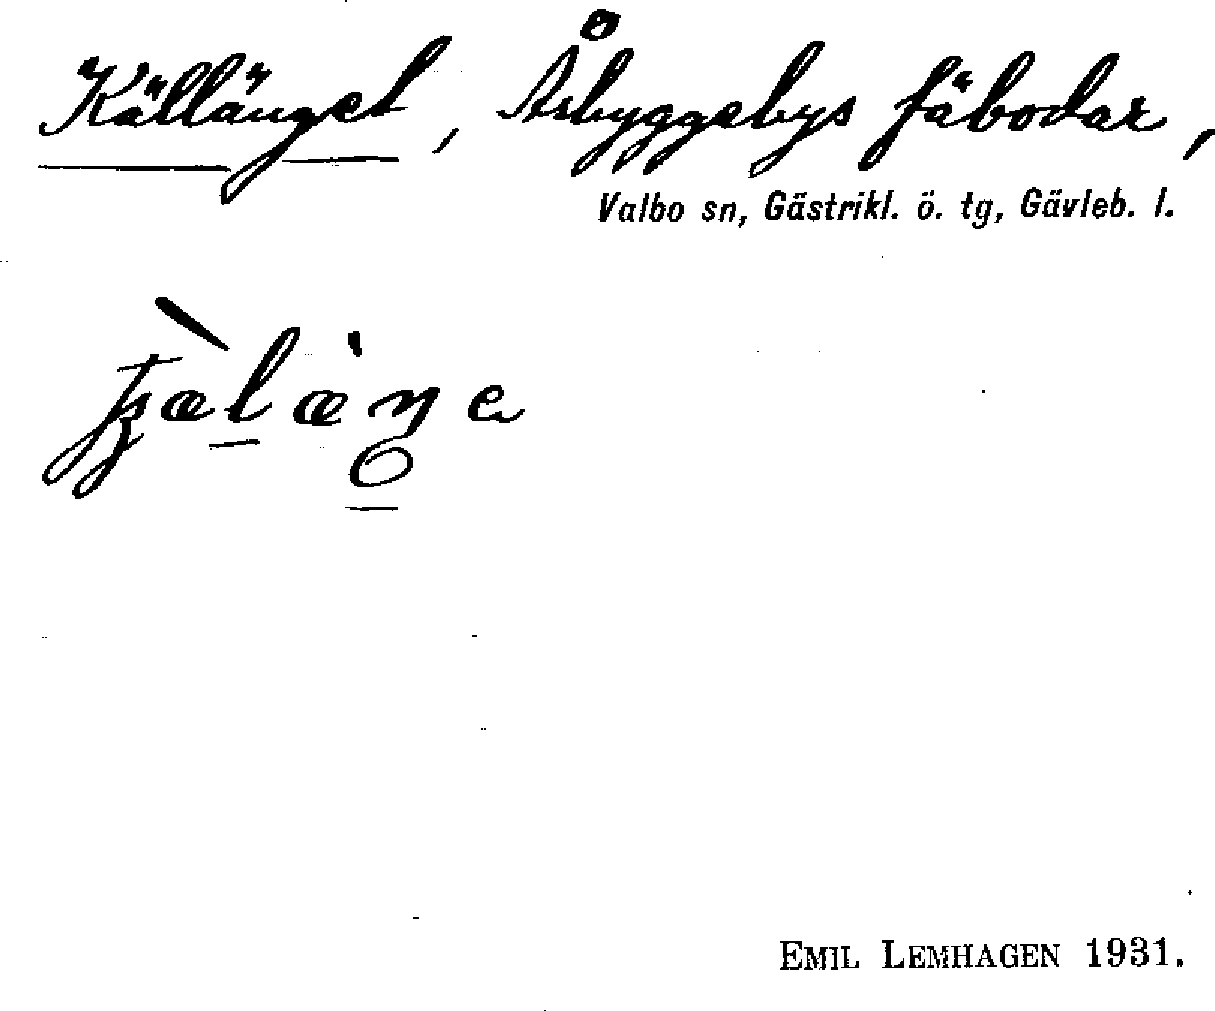 Källänget, Åsbyggebys fäbodar,
Valbo sn, Gästrikl. ö. tg, Gävleb. l.
EMIL LEMHAGEN 1931.